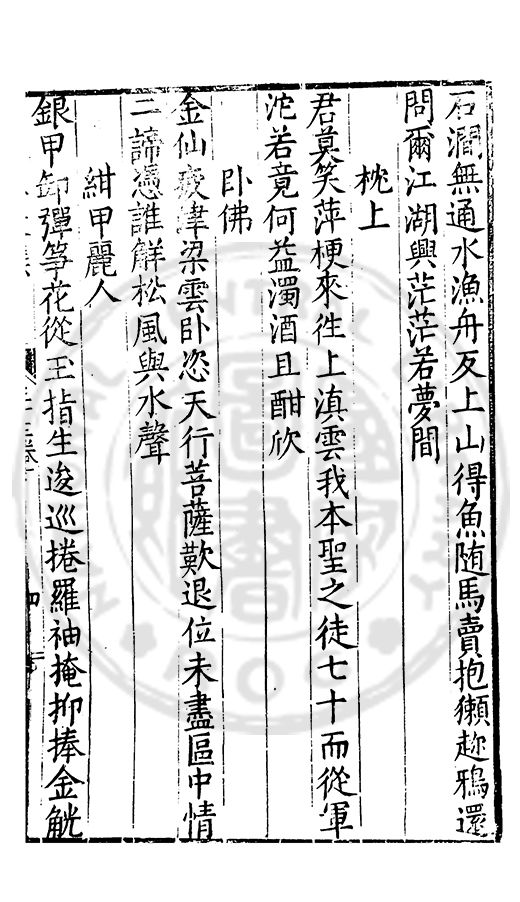 石澗無通水漁舟反上山得魚随馬賣抱獺趂鴉還
問爾江湖興茫茫若夢間
枕上
君莫笑萍梗來徃上滇雲我本聖之徒七十而從軍
沱若竟何益濁酒且酣欣
卧佛
金仙疲津梁雲卧恣天行菩薩歎退位未盡區中情
二諦憑誰解松風與水聲
紺甲麗人
銀甲卸彈筝花從玉指生逡巡捲羅袖掩抑捧金觥